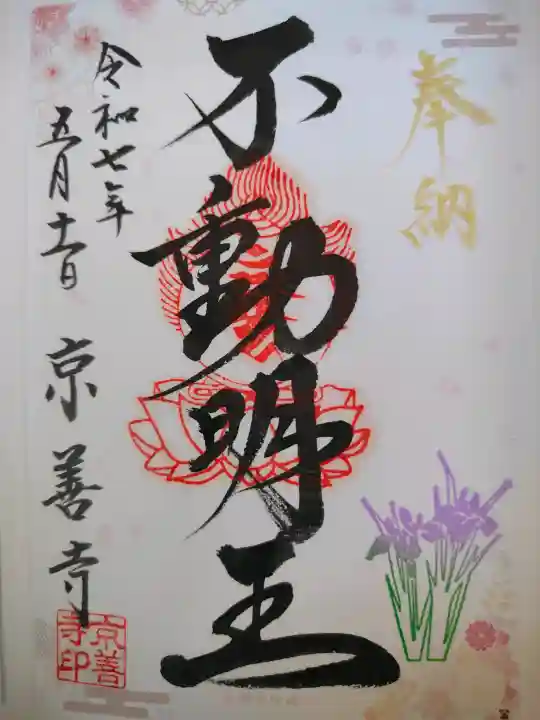 奉納
不動明王
令和七年
五月十一日 京善寺
京善
寺印